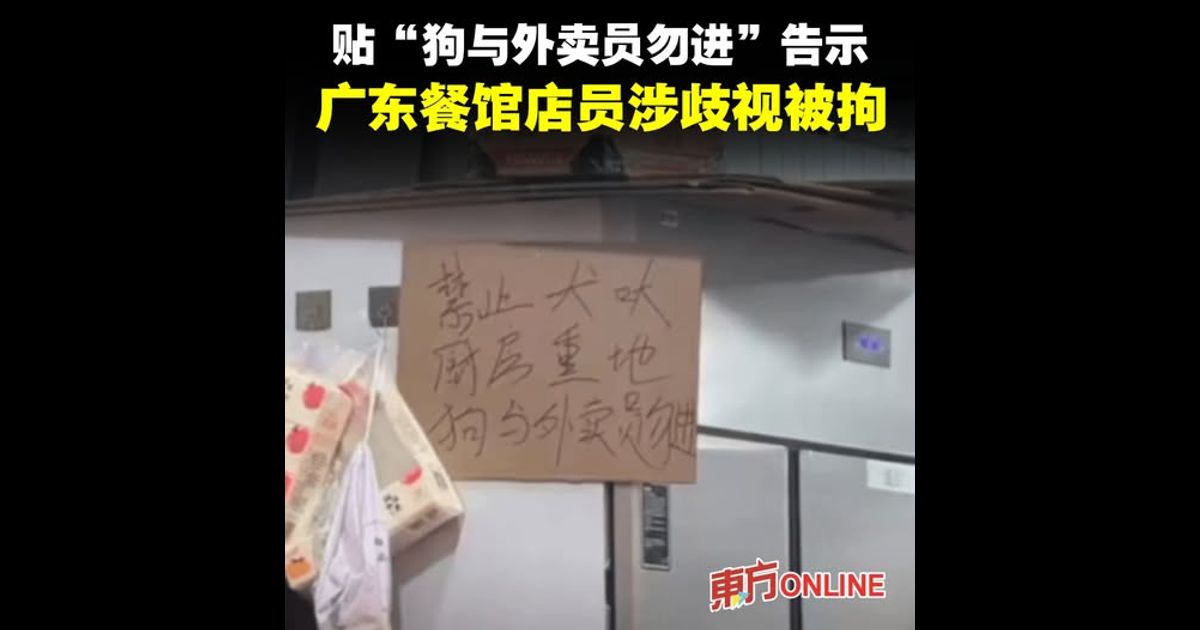 贴“狗与外卖员勿进”告示
广东餐馆店员涉歧视被拘
禁止犬吠
厨房重地
狗与外卖员勿进
東方ONLINE